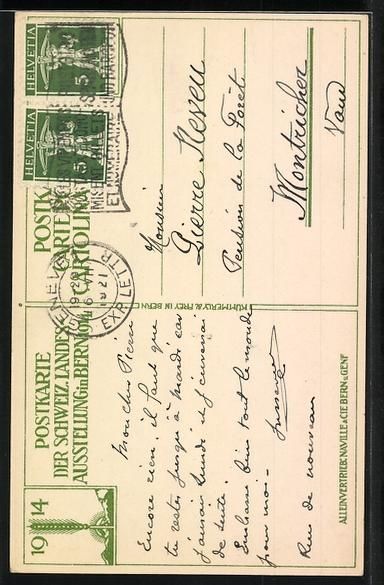 HELVETIA
5
HELVETIA
5
GENÈVE
EXP. LETTR.
1921
POSTK
CARTE
CARTOLINA
1914
POSTKARTE
DER SCHWEIZ. LANDES
AUSSTELLUNG in BERN 1914
KÜMMERLY & FREY IN BERN
ALLEINVERTRIEB: NAVILLE & CIE BERN u. GENF
Monsieur
Pierre Neveu
Pension de la Forêt
Montricher
Vaud
Mon cher Pierre
Encore rien, il faut que
tu restes jusqu'à mardi car
j'aurais lundi et j'
de suite.
Embrasse bien tout le monde
pour moi -
Rien de nouveau